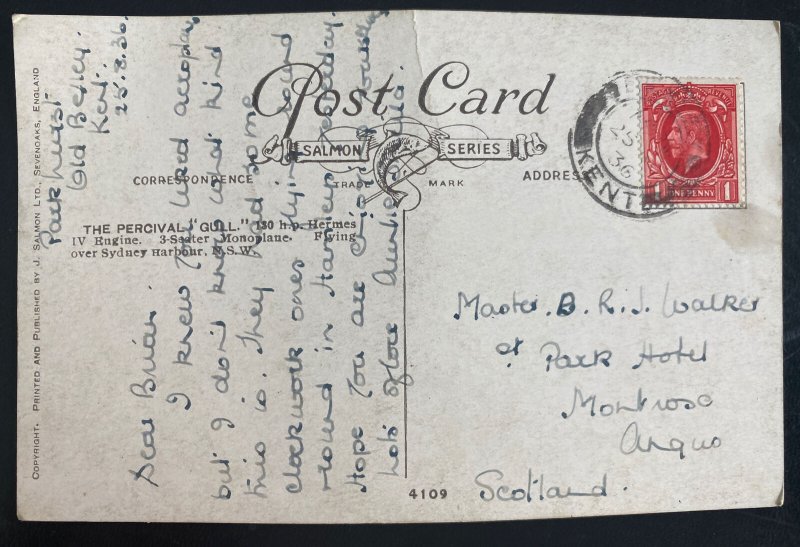 Post Card
SALMON SERIES
TRADE MARK
CORRESPONDENCE
ADDRESS
THE PERCIVAL "GULL." 130 h.p. Hermes
IV Engine. 3-Seater Monoplane. Flying
over Sydney Harbour, N.S.W.
COPYRIGHT. PRINTED AND PUBLISHED BY J. SALMON LTD., SEVENOAKS, ENGLAND
4109
Parkhurst
Old Bexley.
Kent.
25.8.36.
Dear Brian.
I knew you liked aeroplanes
but I don't know what kind
this is. They had some
clockwork ones flying round
round in Hamleys yesterday.
Hope you are
lots of love Auntie
25
36
KENT
ONE PENNY 1
Master. B. R. J. Walker
at Park Hotel
Montrose
Angus
Scotland.